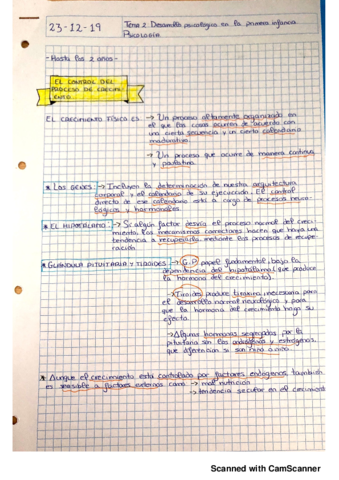 23-12-19
Tema 2. Desarrollo psicológico en la primera infancia
Psicología
-Hasta los 2 años-
EL CONTROL DEL
PROCESO DE CRECIMI-
ENTO
EL CRECIMIENTO FÍSICO ES → Un proceso altamente organizado en
el que las cosas ocurren de acuerdo con
una cierta secuencia y un cierto calendario
madurativo.
→ Un proceso que ocurre de manera continua
y paulatina.
* LOS GENES: → Incluyen la determinación de nuestra arquitectura
corporal y el calendario de su ejecución. El control
directo de ese calendario está a cargo de procesos neuro-
lógicos y hormonales.
* EL HIPOTÁLAMO: → Si algún factor desvía el proceso normal del creci-
miento, los mecanismos correctores hacen que haya una
tendencia a recuperarlo mediante los procesos de recupe-
ración.
* GLÁNDULA PITUITARIA Y TIROIDES → G.P papel fundamental, bajo la
dependencia del hipotálamo (que produce
la hormona del crecimiento).
→ Tiroides produce tiroxina, necesaria para
el desarrollo normal neurológico y para
que la hormona del crecimiento haga su
efecto.
→ Algunas hormonas segregadas por la
pituitaria son los andrógenos y estrógenos,
que diferencian si son niña o niño.
* Aunque el crecimiento está controlado por factores endógenos, también
es sensible a factores externos como → mal nutrición
→ tendencia secular en el crecimiento
Scanned with CamScanner